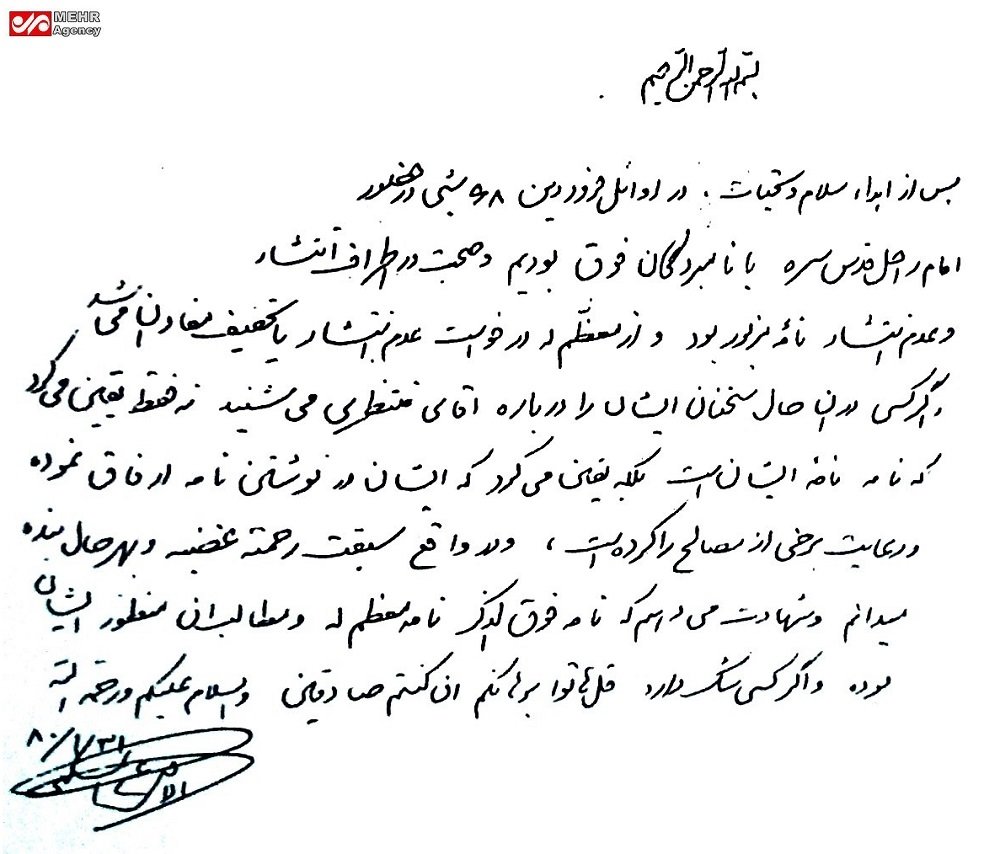 MEHR
Agency
بسم الله الرحمن الرحیم
پس از اهداء سلام و تحیات، در اوائل فروردین ۶۸ شبی در حضور
امام راحل قدس سره با نامبردگان فوق بودیم و صحبت در اطراف انتشار
و عدم انتشار نامهٔ مزبور بود و از معظّم له درخواست عدم انتشار یا تخفیف مفاد آن می شد
و اگر کسی در آن حال سخنان ایشان را درباره آقای منتظری می شنید نه فقط یقین می کرد
که نامه نامهٔ ایشان است بلکه یقین می کرد که ایشان در نوشتن نامه ارفاق نموده
و رعایت برخی از مصالح را کرده است، و در واقع سبقت رحمته غضبه و بهر حال بنده
میدانم و شهادت می دهم که نامه فوق الذکر نامه معظم له و مطالب آن منظور ایشان
بوده و اگر کسی شک دارد قل هاتوا برهانکم ان کنتم صادقین والسلام علیکم و رحمة الله
۸۰/۱/۳۱